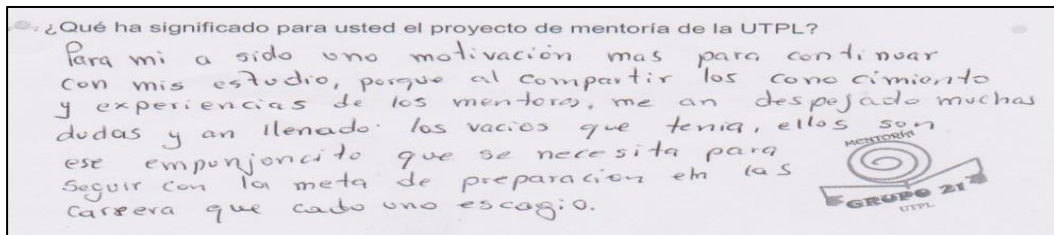 ¿Qué ha significado para usted el proyecto de mentoría de la UTPL?
Para mi a sido uno motivación mas para continuar
con mis estudio, porque al compartir los conocimiento
y experiencias de los mentores, me an despejado muchas
dudas y an llenado los vacios que tenia, ellos son
ese empunjoncito que se necesita para
seguir con la meta de preparación en las
carrera que cada uno escogio.
MENTORÍA
GRUPO 21
UTPL